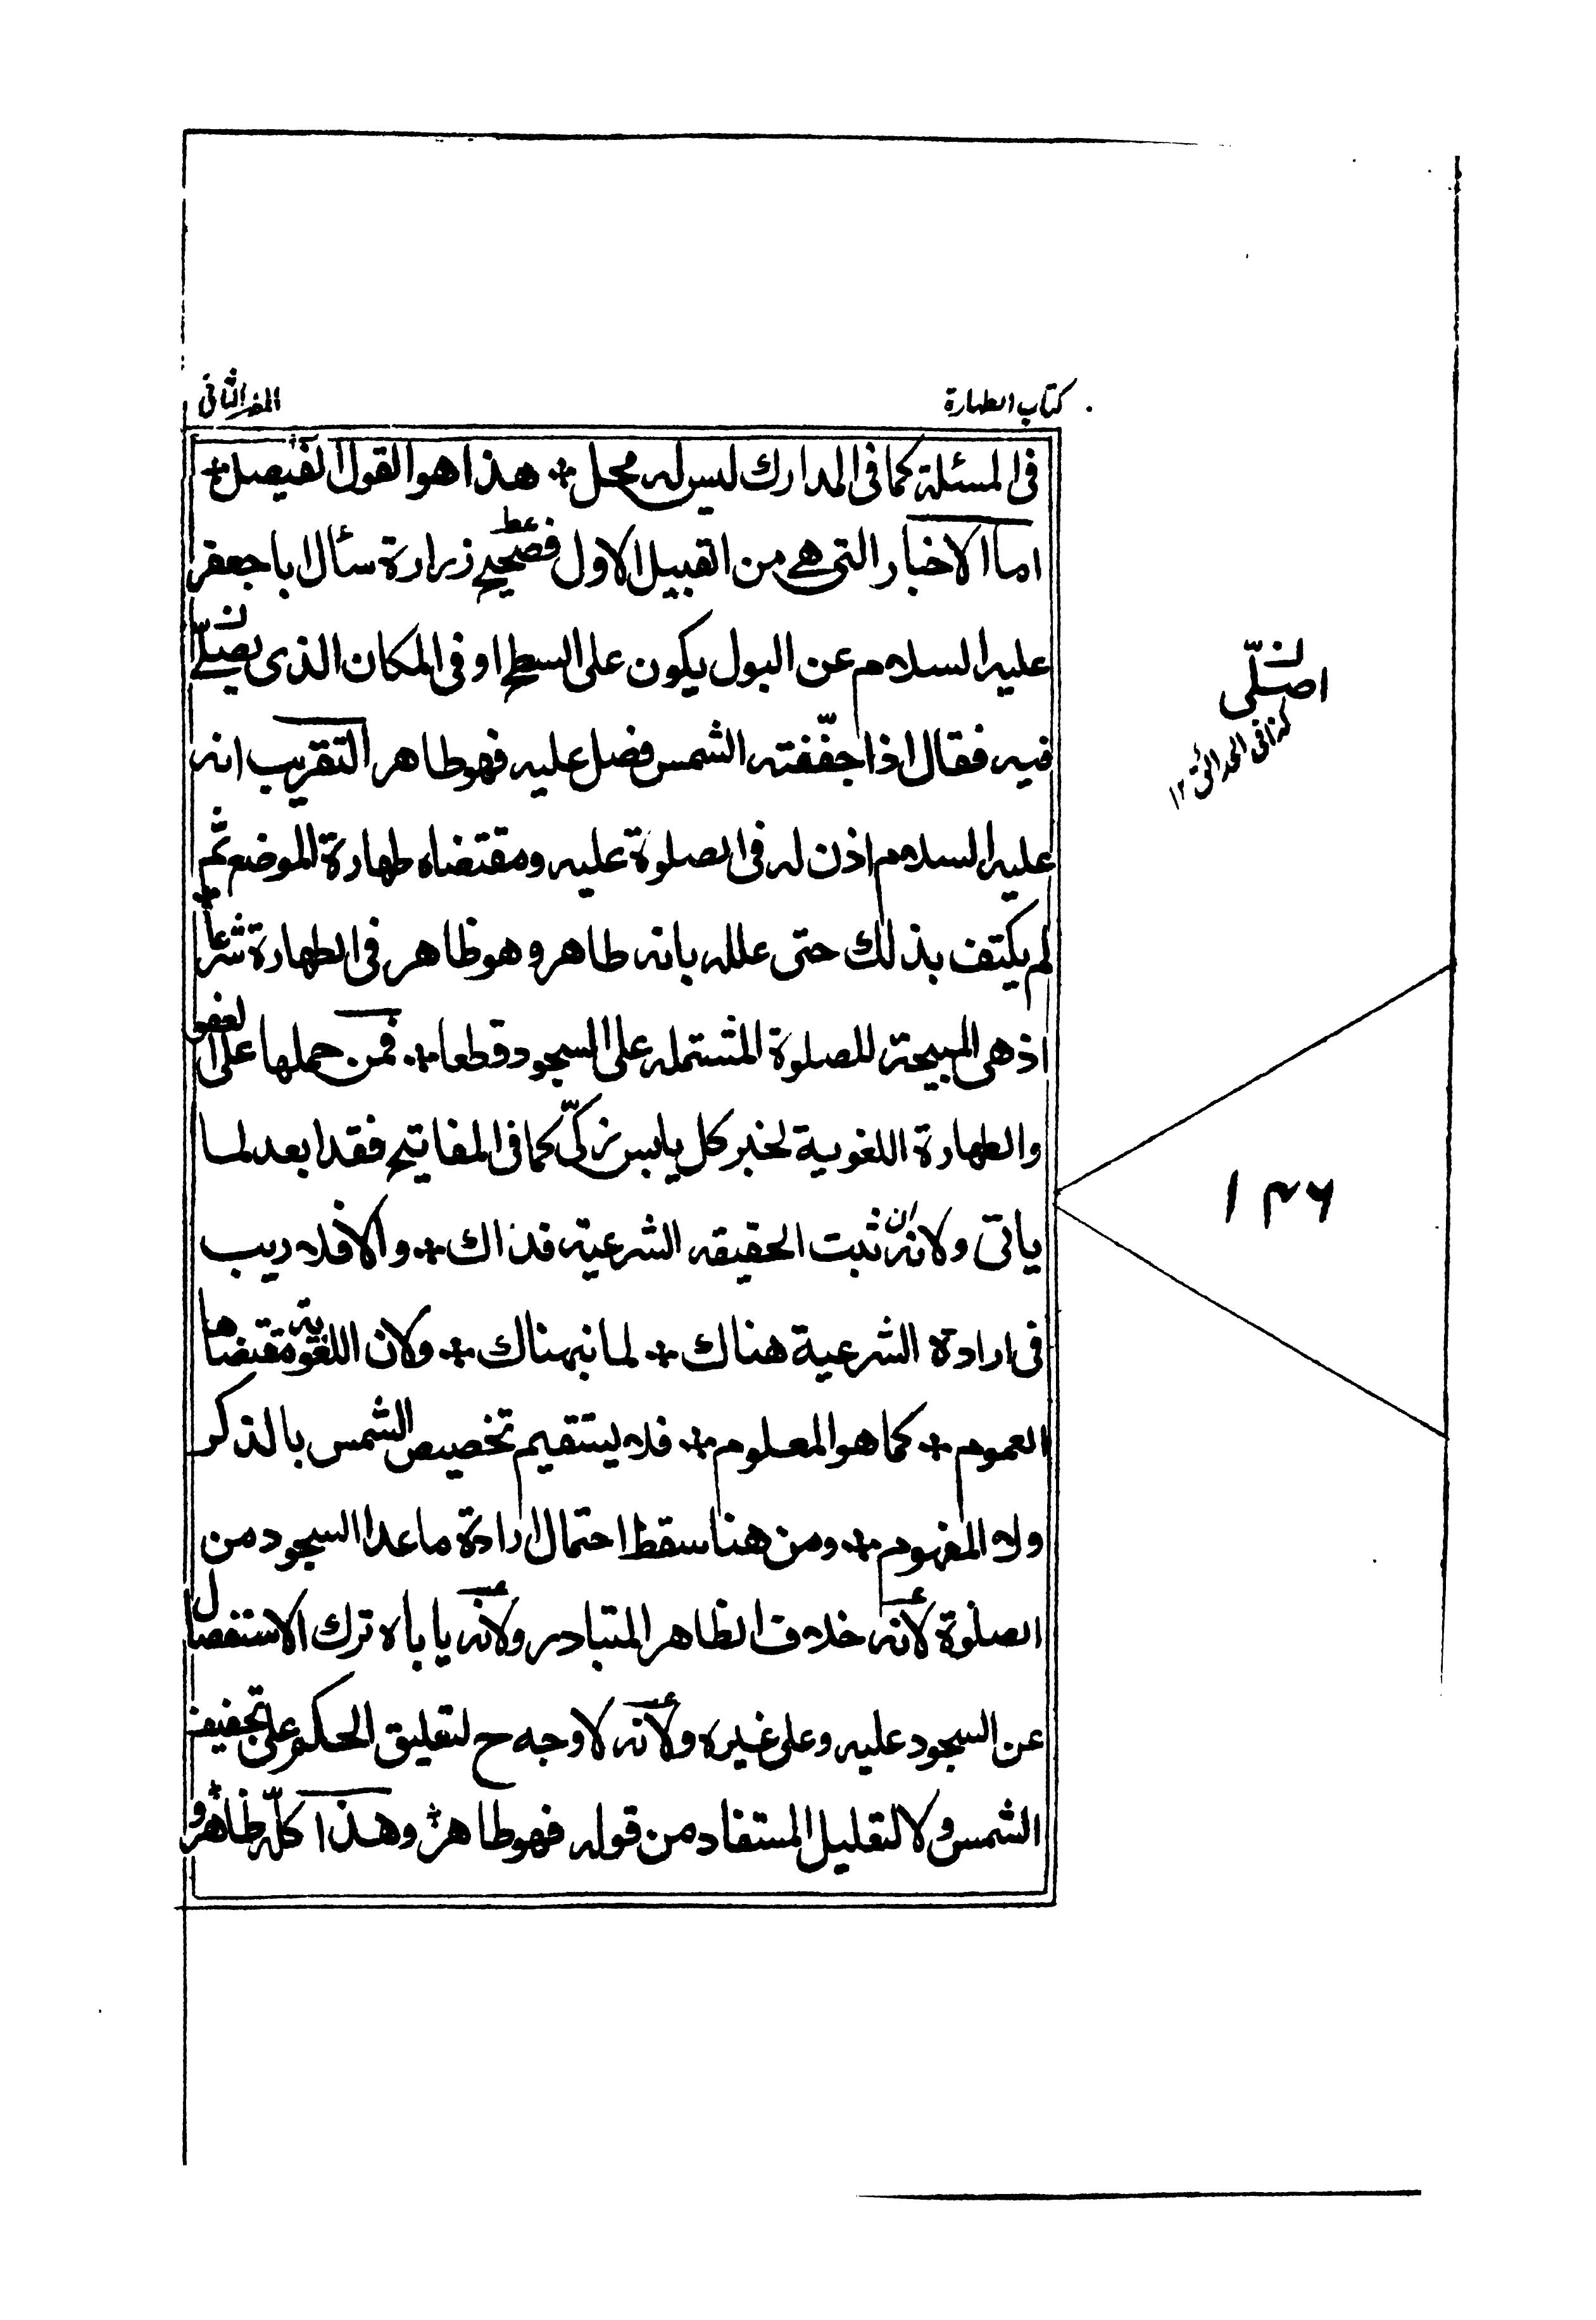 كتاب الطهارة
المضر الثانى
فى المسئلة كما فى المدارك ليس له محل * هذا هو القول الفيصل *
اما الاخبار التى هى من القبيل الاول فصحيح زرارة سأل ابا جعفر
عليه السلام عن البول يكون على السطح او فى المكان الذى يصلى
فيه فقال اذا جفّفته الشمس فصل عليه فهو طاهر التقريب انه
عليه السلام اذن له فى الصلوة عليه ومقتضاه طهارة الموضع ثم
لم يكتف بذلك حتى علله بانه طاهر وهو ظاهر فى الطهارة شرعا *
اذ هى المبيحة للصلوة المشتمله على السجود قطعا * فمن حملها على العفو
والطهارة اللغوية لخبر كل يابس زكىّ كما فى المفاتيح فقد ابعد لما
ياتى ولانه ان ثبت الحقيقه الشرعية فذاك * والا فلا ريب
فى ارادة الشرعية هناك * لما نبهناك * ولان اللغوية مقتضاها
العموم * كما هو المعلوم * فلا يستقيم تخصيص الشمس بالذكر
ولا المفهوم * ومن هنا سقط احتمال ارادة ما عدا السجود من
الصلوة لأنه خلاف الظاهر المتبادر ولأنه ياباه ترك الاستفصال
عن السجود عليه وعلى غيره ولأنه لا وجه ح لتعليق الحكم على تجفيف
الشمس ولا لتعليل المستفاد من قوله فهو طاهر * وهذا كلّه ظاهر * و
اصلّى
كذا فى الحدائق ١٢
١٣٦